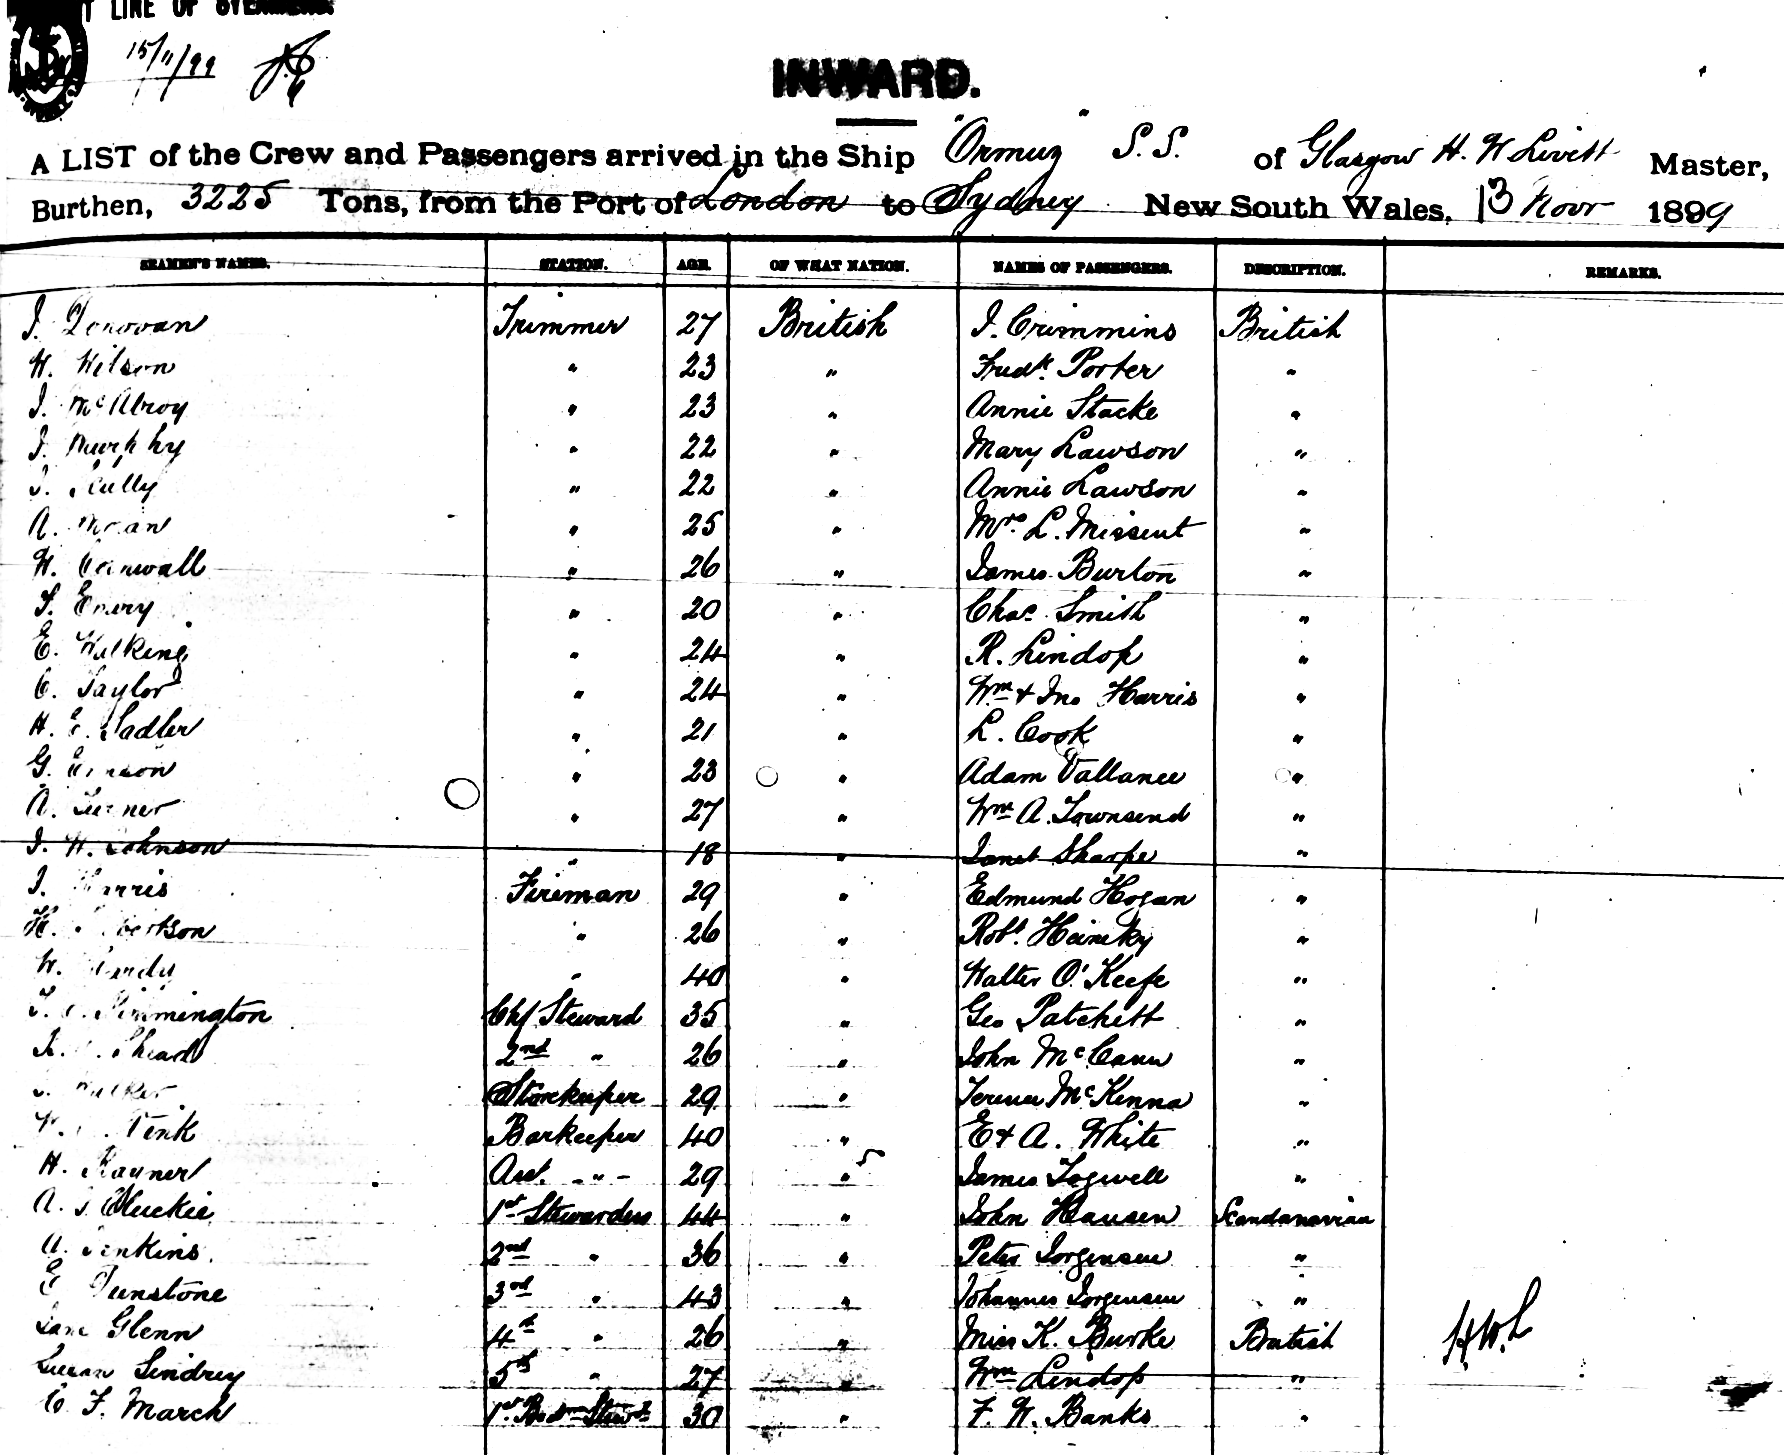 LINE OF STEAMERS.
15/11/99
INWARD.
A LIST of the Crew and Passengers arrived in the Ship "Ormuz" S.S. of Glasgow H. W Livett Master,
Burthen, 3225 Tons, from the Port of London to Sydney New South Wales, 13 Novr 1899
SEAMEN'S NAMES. STATION. AGE. OF WHAT NATION. NAMES OF PASSENGERS. DESCRIPTION. REMARKS.
J. Donovan Trimmer 27 British J. Crimmins British
W. Wilson " 23 " Fredk. Porter "
J. McAlroy " 23 " Annie Stacke "
J. Murphy " 22 " Mary Lawson "
J. Scully " 22 " Annie Lawson "
A. " 25 " Mrs. L. Missent "
W. Cornwall " 26 " James Burton "
F. Emery " 20 " Chas. Smith "
E. Walking " 24 " R. Lindop "
C. Taylor " 24 " Wm & Jno Harris "
H. E. Sadler " 21 " L. Cook "
G. " 23 " Adam Vallance "
A. Turner " 27 " Wm A. Townsend "
J. W. Johnson " 18 " Janet Sharpe "
J. Harris Fireman 29 " Edmund Hogan "
" 26 " Robt. "
W. " 40 " Walter O'Keefe "
Simmington Chf Steward 35 " Geo Patchett "
Sheard 2nd " 26 " John McCann "
Storekeeper 29 " Terence McKenna "
Barkeeper 40 " E & A. White "
H. Rayner Asst. -"- 29 " James Togwell "
A. Muckie 1st Stewardess 44 " John Hansen Scandanavian
A. Jenkins. 2nd " 36 " Peter Jorgensen "
E Dunstone 3rd " 43 " Johannes Jorgensen "
Jane Glenn 4th " 26 " Miss K. Burke British H.W.L
Susan Lindrey 5th " 27 " Wm Lindop "
C. F. March 1st Bedrm Stewd 30 " F. W. Banks "